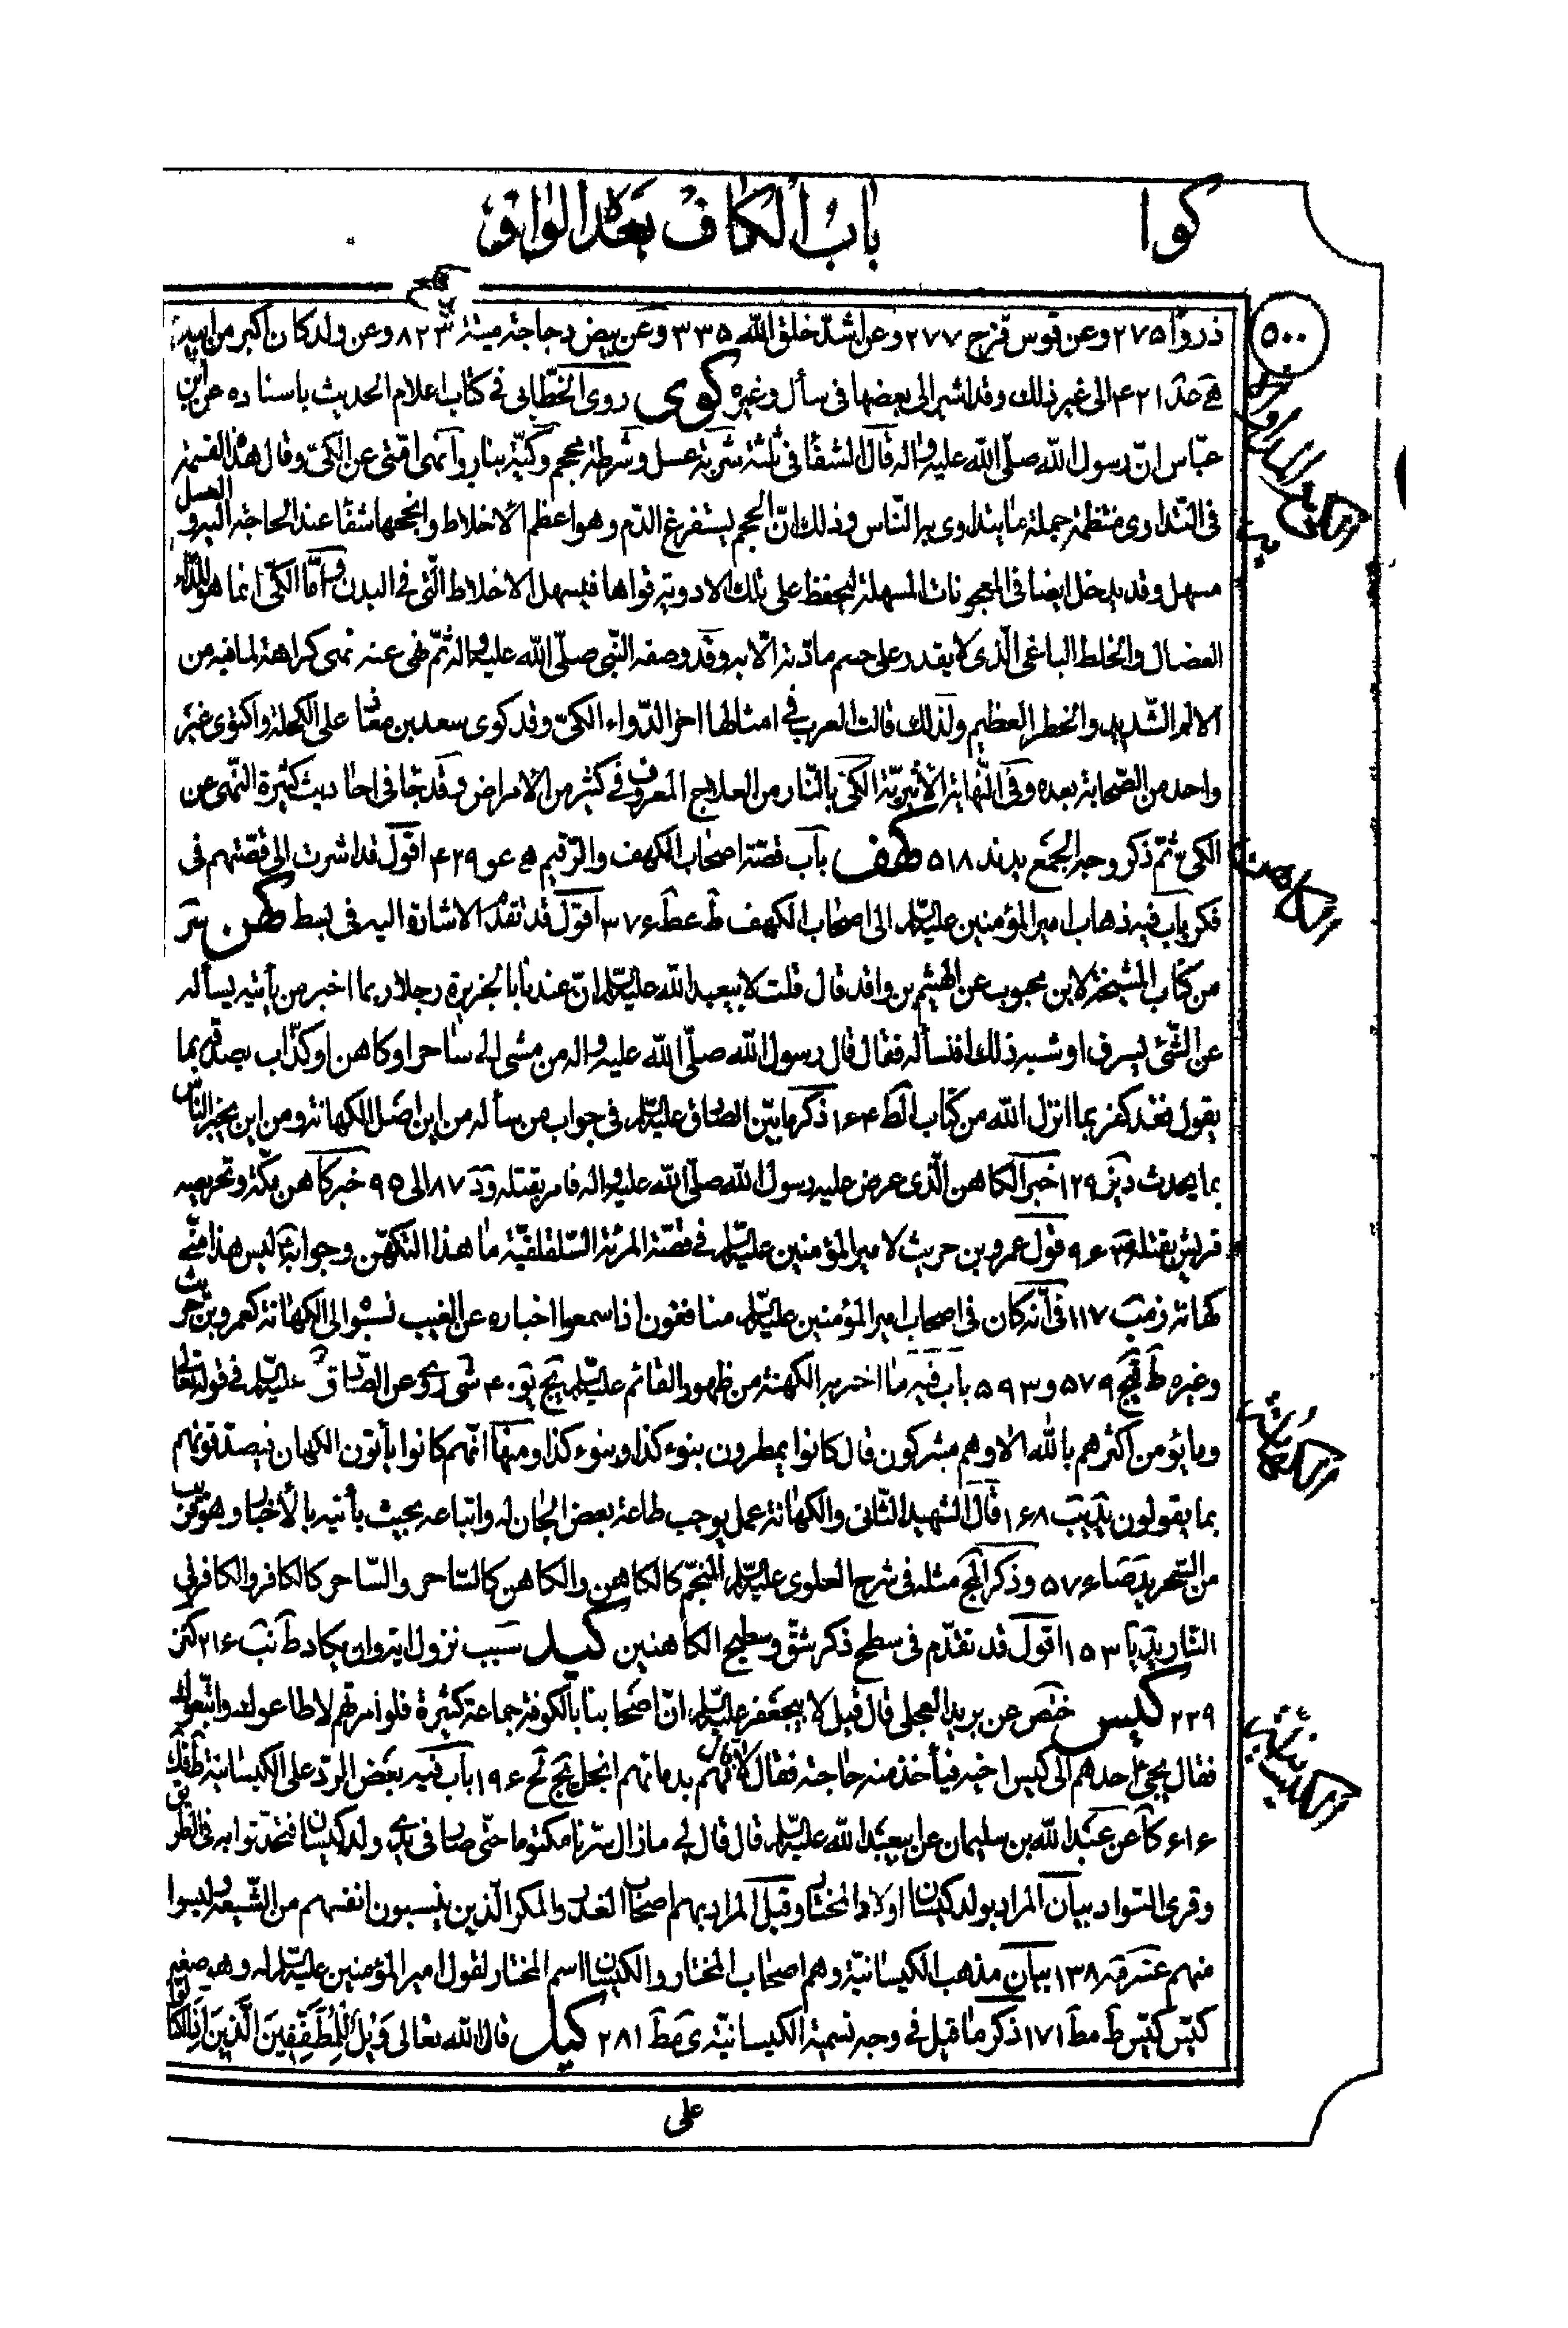 كوا
باب الكاف بعد الواو
٥٠٠
ذروا ٢٧٥ وعن قوس قزح ٢٧٧ وعن اشدّ خلق الله ٣٣٥ وعن بيض دجاجة ميتة ٨٢٣ وعن ولد كان اكبر من ابيه
٤٢١ الى غير ذلك وقد اشير الى بعضها فى سأل وغيره كوى روى الخطّابى فى كتاب اعلام الحديث باسناده عن ابن
عبّاس انّ رسول الله صلّى الله عليه واله قال الشفا فى ثلثة شربة عسل وشرطة محجم وكيّة بنار وانهى امّتى عن الكىّ وقال هذه القسمة
فى التداوى منتظمة جملة ما يتداوى به النّاس وذلك انّ الحجم يستفرغ الدّم وهو اعظم الاخلاط وانجحها شفا عند الحاجة اليه والعسل
مسهل وقد يدخل ايضا فى المعجونات المسهلة ليحفظ على تلك الادوية قواها فيسهل الاخلاط الّتى فى البدن وامّا الكىّ انما هو للدّاء
العضال والخلط الباغى الّذى لا يقدر على حسم مادّته الّا به وقد وصفه النّبى صلّى الله عليه واله ثمّ نهى عنه نهى كراهة لما فيه من
الالم الشّديد والخطر العظيم ولذلك قالت العرب فى امثالها اخر الدّواء الكىّ وقد كوى سعد بن معاذ على اكحله واكتوى غير
واحد من الصّحابة بعده وفى النّهاية الأثيريّة الكىّ بالنّار من العلاج المعروف فى كثير من الامراض وقد جا فى احاديث كثيرة النّهى عن
الكىّ ثمّ ذكر وجه الجمع يد ند ٥١٨ كهف باب قصّة اصحاب الكهف والرّقيم ه عو ٤٢٩ اقول قد اشرت الى قصّتهم فى
فكر باب فيه ذهاب امير المؤمنين عليه السّلم الى اصحاب الكهف ط عط ٣٧٦ اقول قد تقدّم الاشارة اليه فى بسط كهن سر
من كتاب المشيخة لابن محبوب عن الهيثم بن واقد قال قلت لابيعبد الله عليه السّلم انّ عندنا بالجزيرة رجلا ربما اخبر من يأتيه يسأله
عن الشّئ يسرق او شبه ذلك افنسأله فقال قال رسول الله صلّى الله عليه واله من مشى الى ساحر او كاهن او كذّاب يصدقه بما
يقول فقد كفر بما انزل الله من كتاب الط ١٦٤ ذكر ما بيّن الصادق عليه السّلم فى جواب من سأله من اين اصل الكهانة ومن اين يخبر النّاس
بما يحدث ١٢٩ خبر الكاهن الّذى عرض عليه رسول الله صلّى الله عليه واله فامر بقتله ود ٨٧ الى ٩٥ خبر كاهن بمكّة وتحريصه
قريش بقتله ٩٦ قول عمرو بن حريث لامير المؤمنين عليه السّلم فى قصّة المرئة السّلقلقيّة ما هذا التكهّن وجوابه ليس هذا منّى
كهانة ١١٧ فى انّه كان فى اصحاب امير المؤمنين عليه السّلم منافقون اذا سمعوا اخباره عن الغيب نسبوا الى الكهانة كعمرو بن حريث
وغيره ط قيج ٥٧٩ و ٥٩٣ باب فيه ما اخبر به الكهنة من ظهور القائم عليه السّلم يج يو ٤٠ شى روى عن الصّادق عليه السّلم فى قوله تعالى
وما يؤمن اكثرهم بالله الا وهم مشركون قال كانوا يمطرون بنوء كذا وبنوء كذا ومنها انّهم كانوا يأتون الكهان فيصدّقونهم
بما يقولون ١٦٨ قال الشهيد الثّانى والكهانة عمل يوجب طاعة بعض الجان له واتباعه بحيث يأتيه بالأخبار وهو قريب
من السّحر ٥٧٦ وذكر المج مثله فى شرح العلوى عليه السّلم المنجّم كالكاهن والكاهن كالسّاحر والسّاحر كالكافر والكافر فى
النّار يد يا ١٥٣ اقول قد تقدّم فى سطح ذكر شقّ وسطيح الكاهنين كيد سبب نزول اية وان يكاد ط نب ٢١٦ كنز
٢٢٩ كيس ختص عن بريد العجلى قال قيل لابيجعفر عليه السّلم انّ اصحابنا بالكوفة جماعة كثيرة فلو امرتهم لاطاعوك واتّبعوك
فقال يجئ احدهم الى كيس اخيه فيأخذ منه حاجته فقال لا قال فهم بدمائهم ابخل يج لح ١٩٦ باب فيه بعض الردّ على الكيسانية
٦١٦ كا عن عبد الله بن سليمان عن ابيعبد الله عليه السّلم قال قال لى ما زال سرّنا مكتوما حتّى صار فى يدى ولد كيسان فتحدّثوا به فى الطّريق
وقرى السّواد بيان المراد بولد كيسان اولاد المختار وقيل المراد بهم اصحاب الغدر والمكر الّذين ينسبون انفسهم من الشّيعة وليسوا
منهم عشر ١٣٨ بيان مذهب الكيسانيّة وهم اصحاب المختار والكيسان اسم المختار لقول امير المؤمنين عليه السّلم له وهو صغير
كيّس كيّس ط مط ١٧١ ذكر ما قيل فى وجه تسمية الكيسانيّة ى مط ٢٨١ كيل قال الله تعالى ويل للمطفّفين الّذين اذا اكتالوا
على
الكهانة
الكيسانية